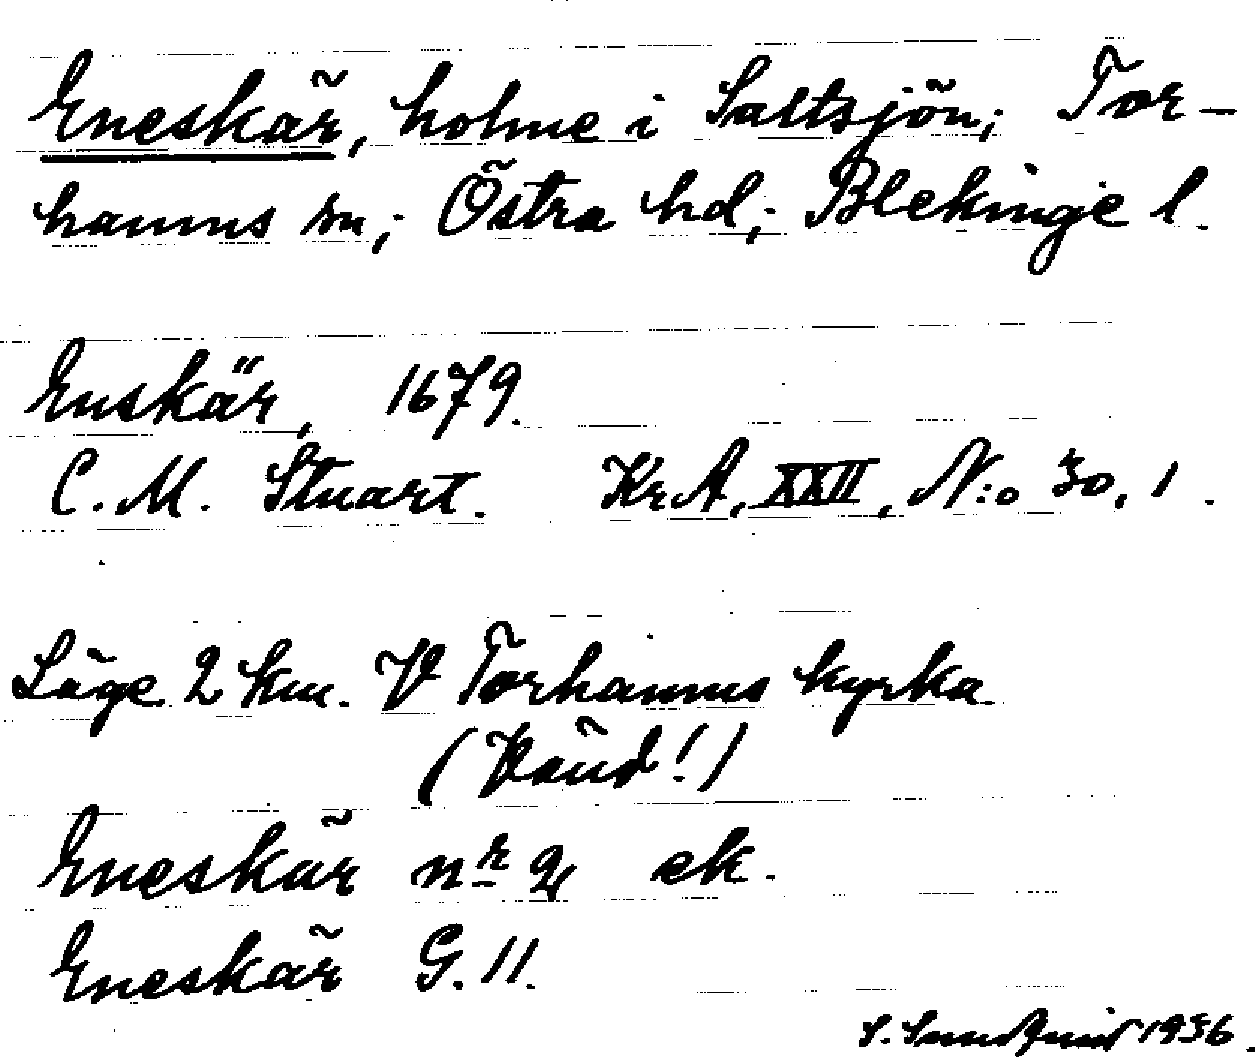 Eneskär, holme i Saltsjön; Tor-
hamns sn; Östra hd; Blekinge l.
Enskär, 1679.
C. M. Stuart. KrA, XXII, N:o 30, 1.
Läge 2 km. V Torhamns kyrka
(Vänd!)
Eneskär nr 2 ek.
Eneskär G. 11.
1936